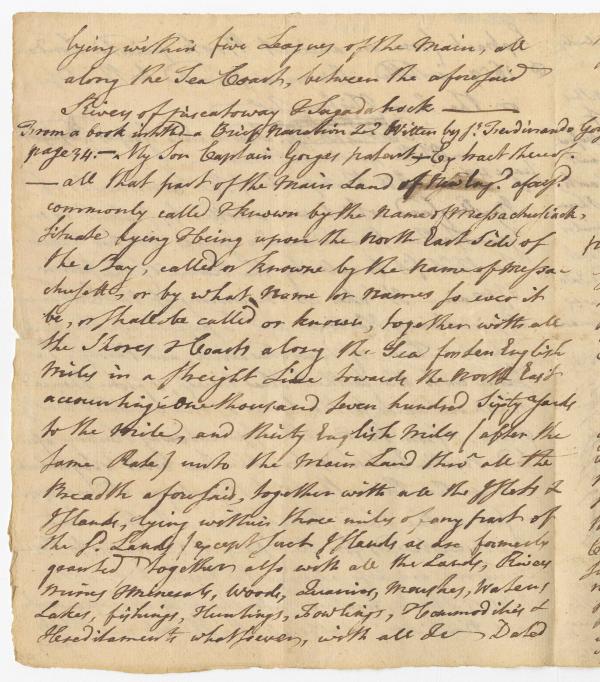 lying within five Leagues of the Main, all
along the Sea Coast, between the aforesaid
Rivers of Piscatoway & Sagadahock —
From a book intitled a Brief Naration &ca Written by Sr. Ferdinando Gor
page 34.— My Son Captain Gorges patent Extract thereof.
— all that part of the Main Land of New Engd. aforesd.
commonly called & known by the Name of Messachusiack,
Situate lying & being upon the North East Side of
the Bay, called or knowne by the Name of Messa
chusetts, or by what Name or Names so ever it
be, or shall be called or known, together with all
the Shores & Coasts along the Sea for ten English
Miles in a streight Line towards the North East
accounting one thousand seven hundred Sixty Yards
to the Mile, and thirty English Miles (after the
same Rate) unto the Main Land thro' all the
Breadth aforesaid, together with all the Islets &
Islands, lying within three miles of any part of
the sd. Lands (except such Islands as are formerly
granted) together also with all the Lands, Rivers
Mines Minerals, Woods, Quarries, Marshes, Waters
Lakes, fishings, Huntings, Fowlings, & Commodities &
Hereditaments whatsoever, with all &c Dated